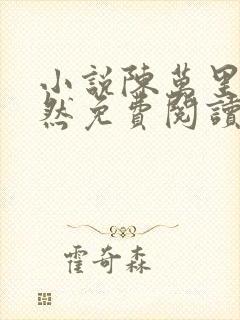 小說陳萬里
然免費閱讀
霍奇森